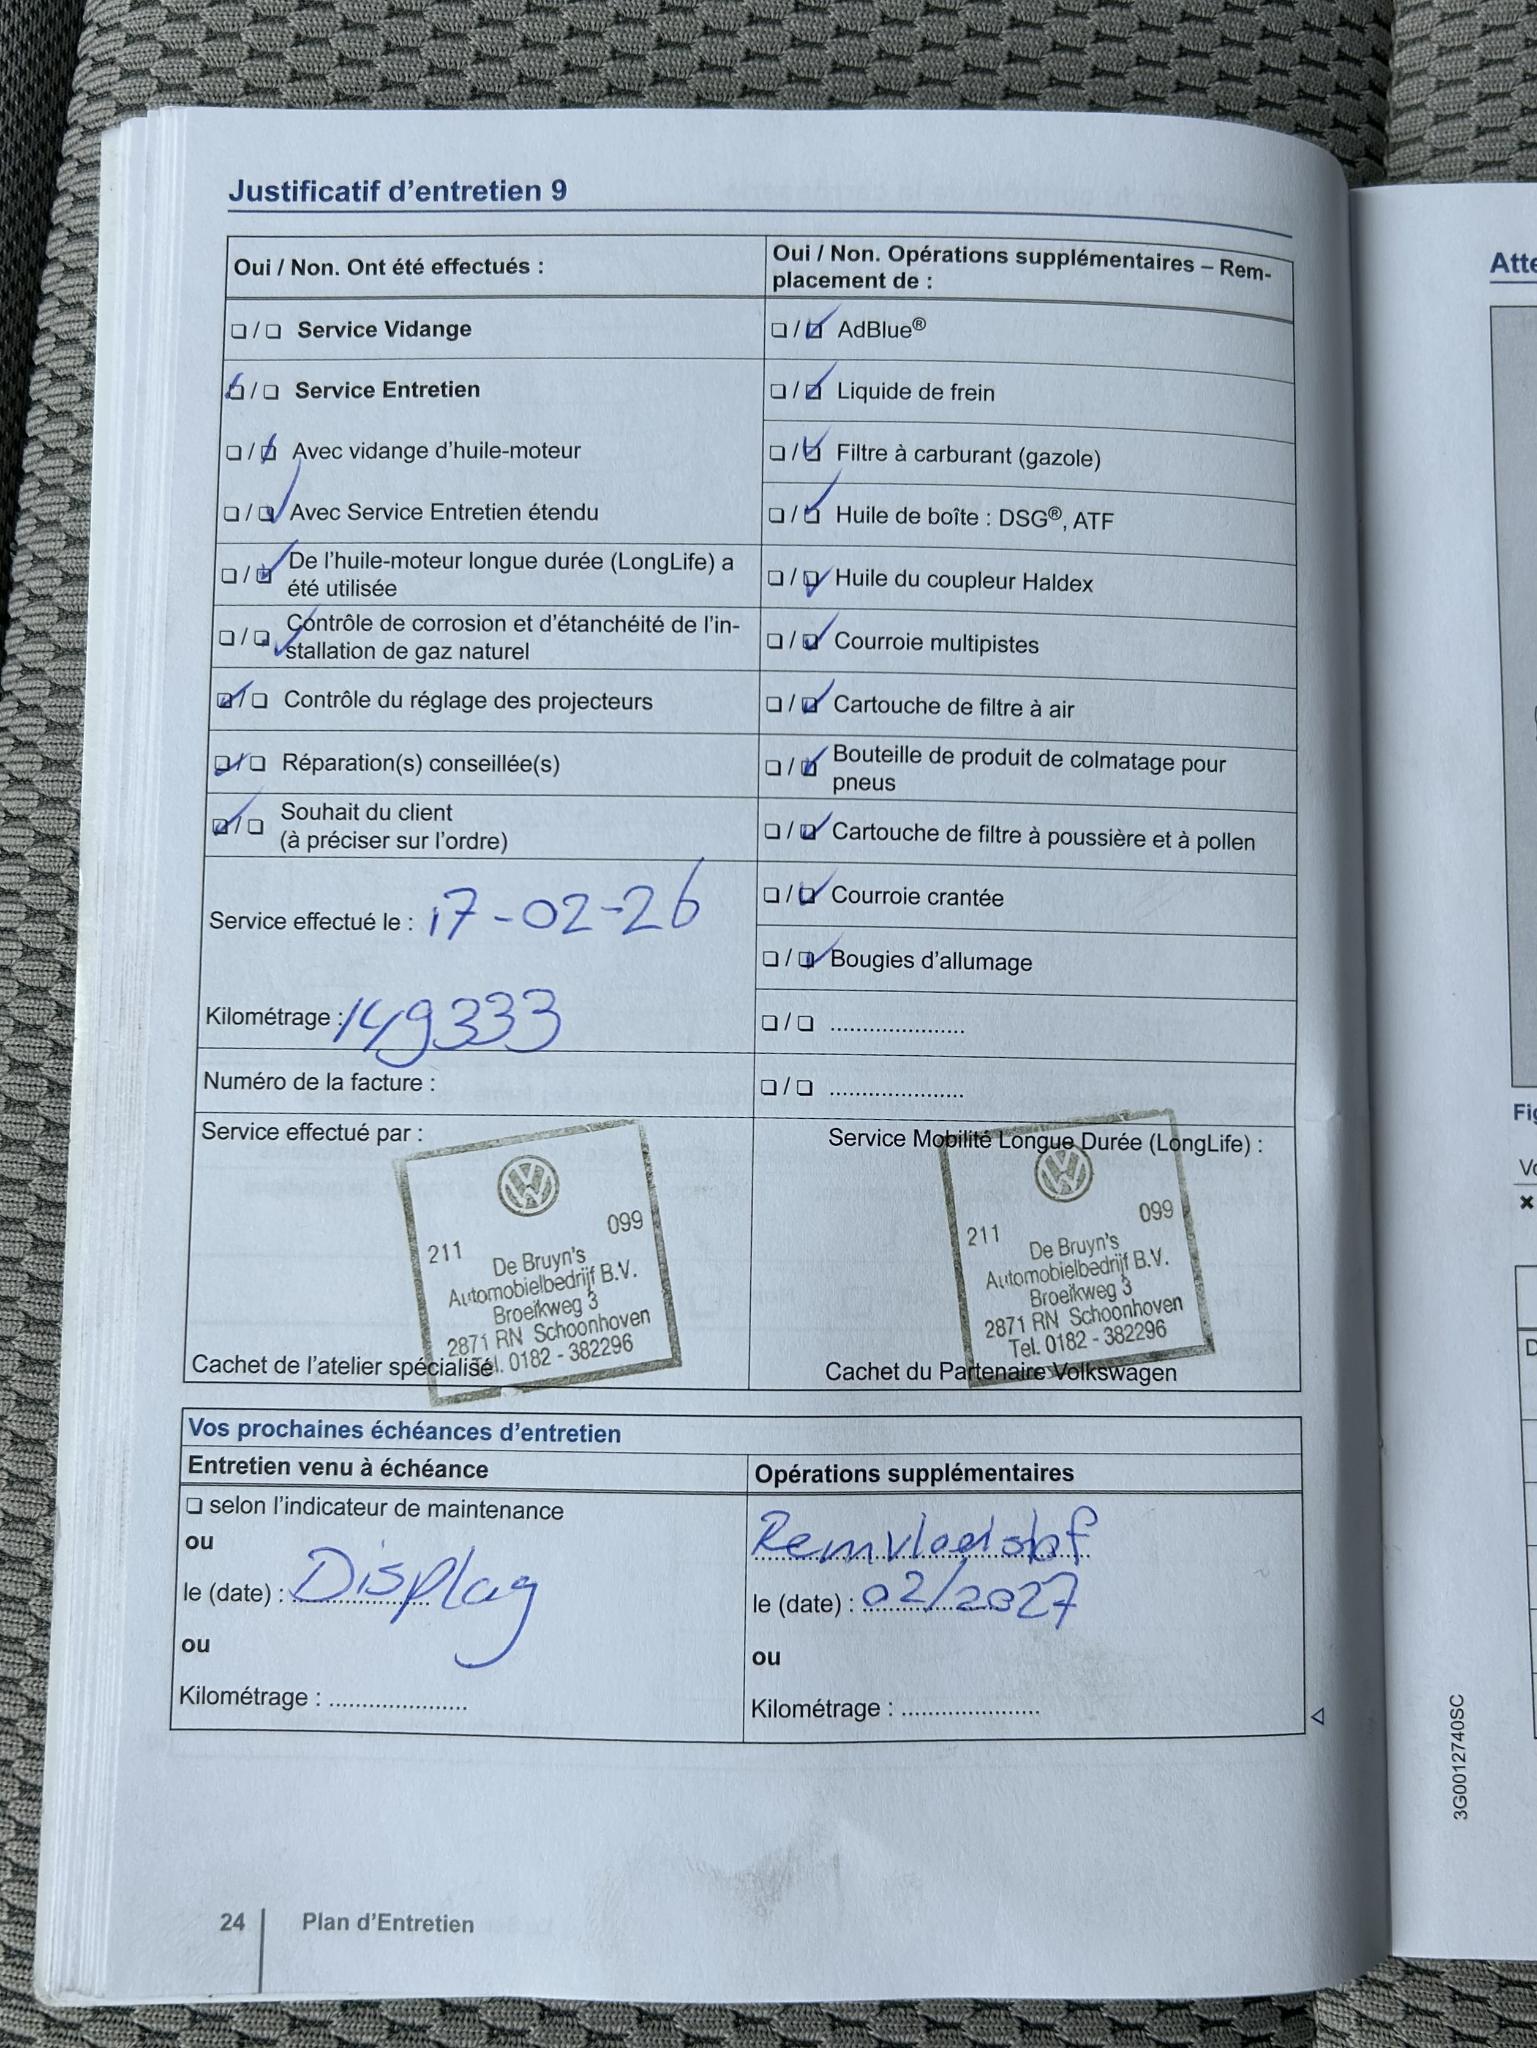 Justificatif d'entretien 9
Oui / Non. Ont été effectués :
❏ / ❏ Service Vidange
❏ / ❏ Service Entretien
❏ / ❏ Avec vidange d'huile-moteur
❏ / ❏ Avec Service Entretien étendu
❏ / ❏ De l'huile-moteur longue durée (LongLife) a
été utilisée
❏ / ❏ Contrôle de corrosion et d'étanchéité de l'in-
stallation de gaz naturel
❏ / ❏ Contrôle du réglage des projecteurs
❏ / ❏ Réparation(s) conseillée(s)
❏ / ❏ Souhait du client
(à préciser sur l'ordre)
Service effectué le : 17-02-26
Kilométrage : 149333
Numéro de la facture :
Oui / Non. Opérations supplémentaires – Rem-
placement de :
❏ / ❏ AdBlue®
❏ / ❏ Liquide de frein
❏ / ❏ Filtre à carburant (gazole)
❏ / ❏ Huile de boîte : DSG®, ATF
❏ / ❏ Huile du coupleur Haldex
❏ / ❏ Courroie multipistes
❏ / ❏ Cartouche de filtre à air
❏ / ❏ Bouteille de produit de colmatage pour
pneus
❏ / ❏ Cartouche de filtre à poussière et à pollen
❏ / ❏ Courroie crantée
❏ / ❏ Bougies d'allumage
❏ / ❏ ....................
❏ / ❏ ....................
Service effectué par :
211 099
De Bruyn's
Automobielbedrijf B.V.
Broeikweg 3
2871 RN Schoonhoven
Tel. 0182 - 382296
Cachet de l'atelier spécialisé
Service Mobilité Longue Durée (LongLife) :
211 099
De Bruyn's
Automobielbedrijf B.V.
Broeikweg 3
2871 RN Schoonhoven
Tel. 0182 - 382296
Cachet du Partenaire Volkswagen
Vos prochaines échéances d'entretien
Entretien venu à échéance
❏ selon l'indicateur de maintenance
ou
le (date) : Display
ou
Kilométrage : ....................
Opérations supplémentaires
le (date) : 02/2027
ou
Kilométrage : ....................
24 Plan d'Entretien
3G0012740SC